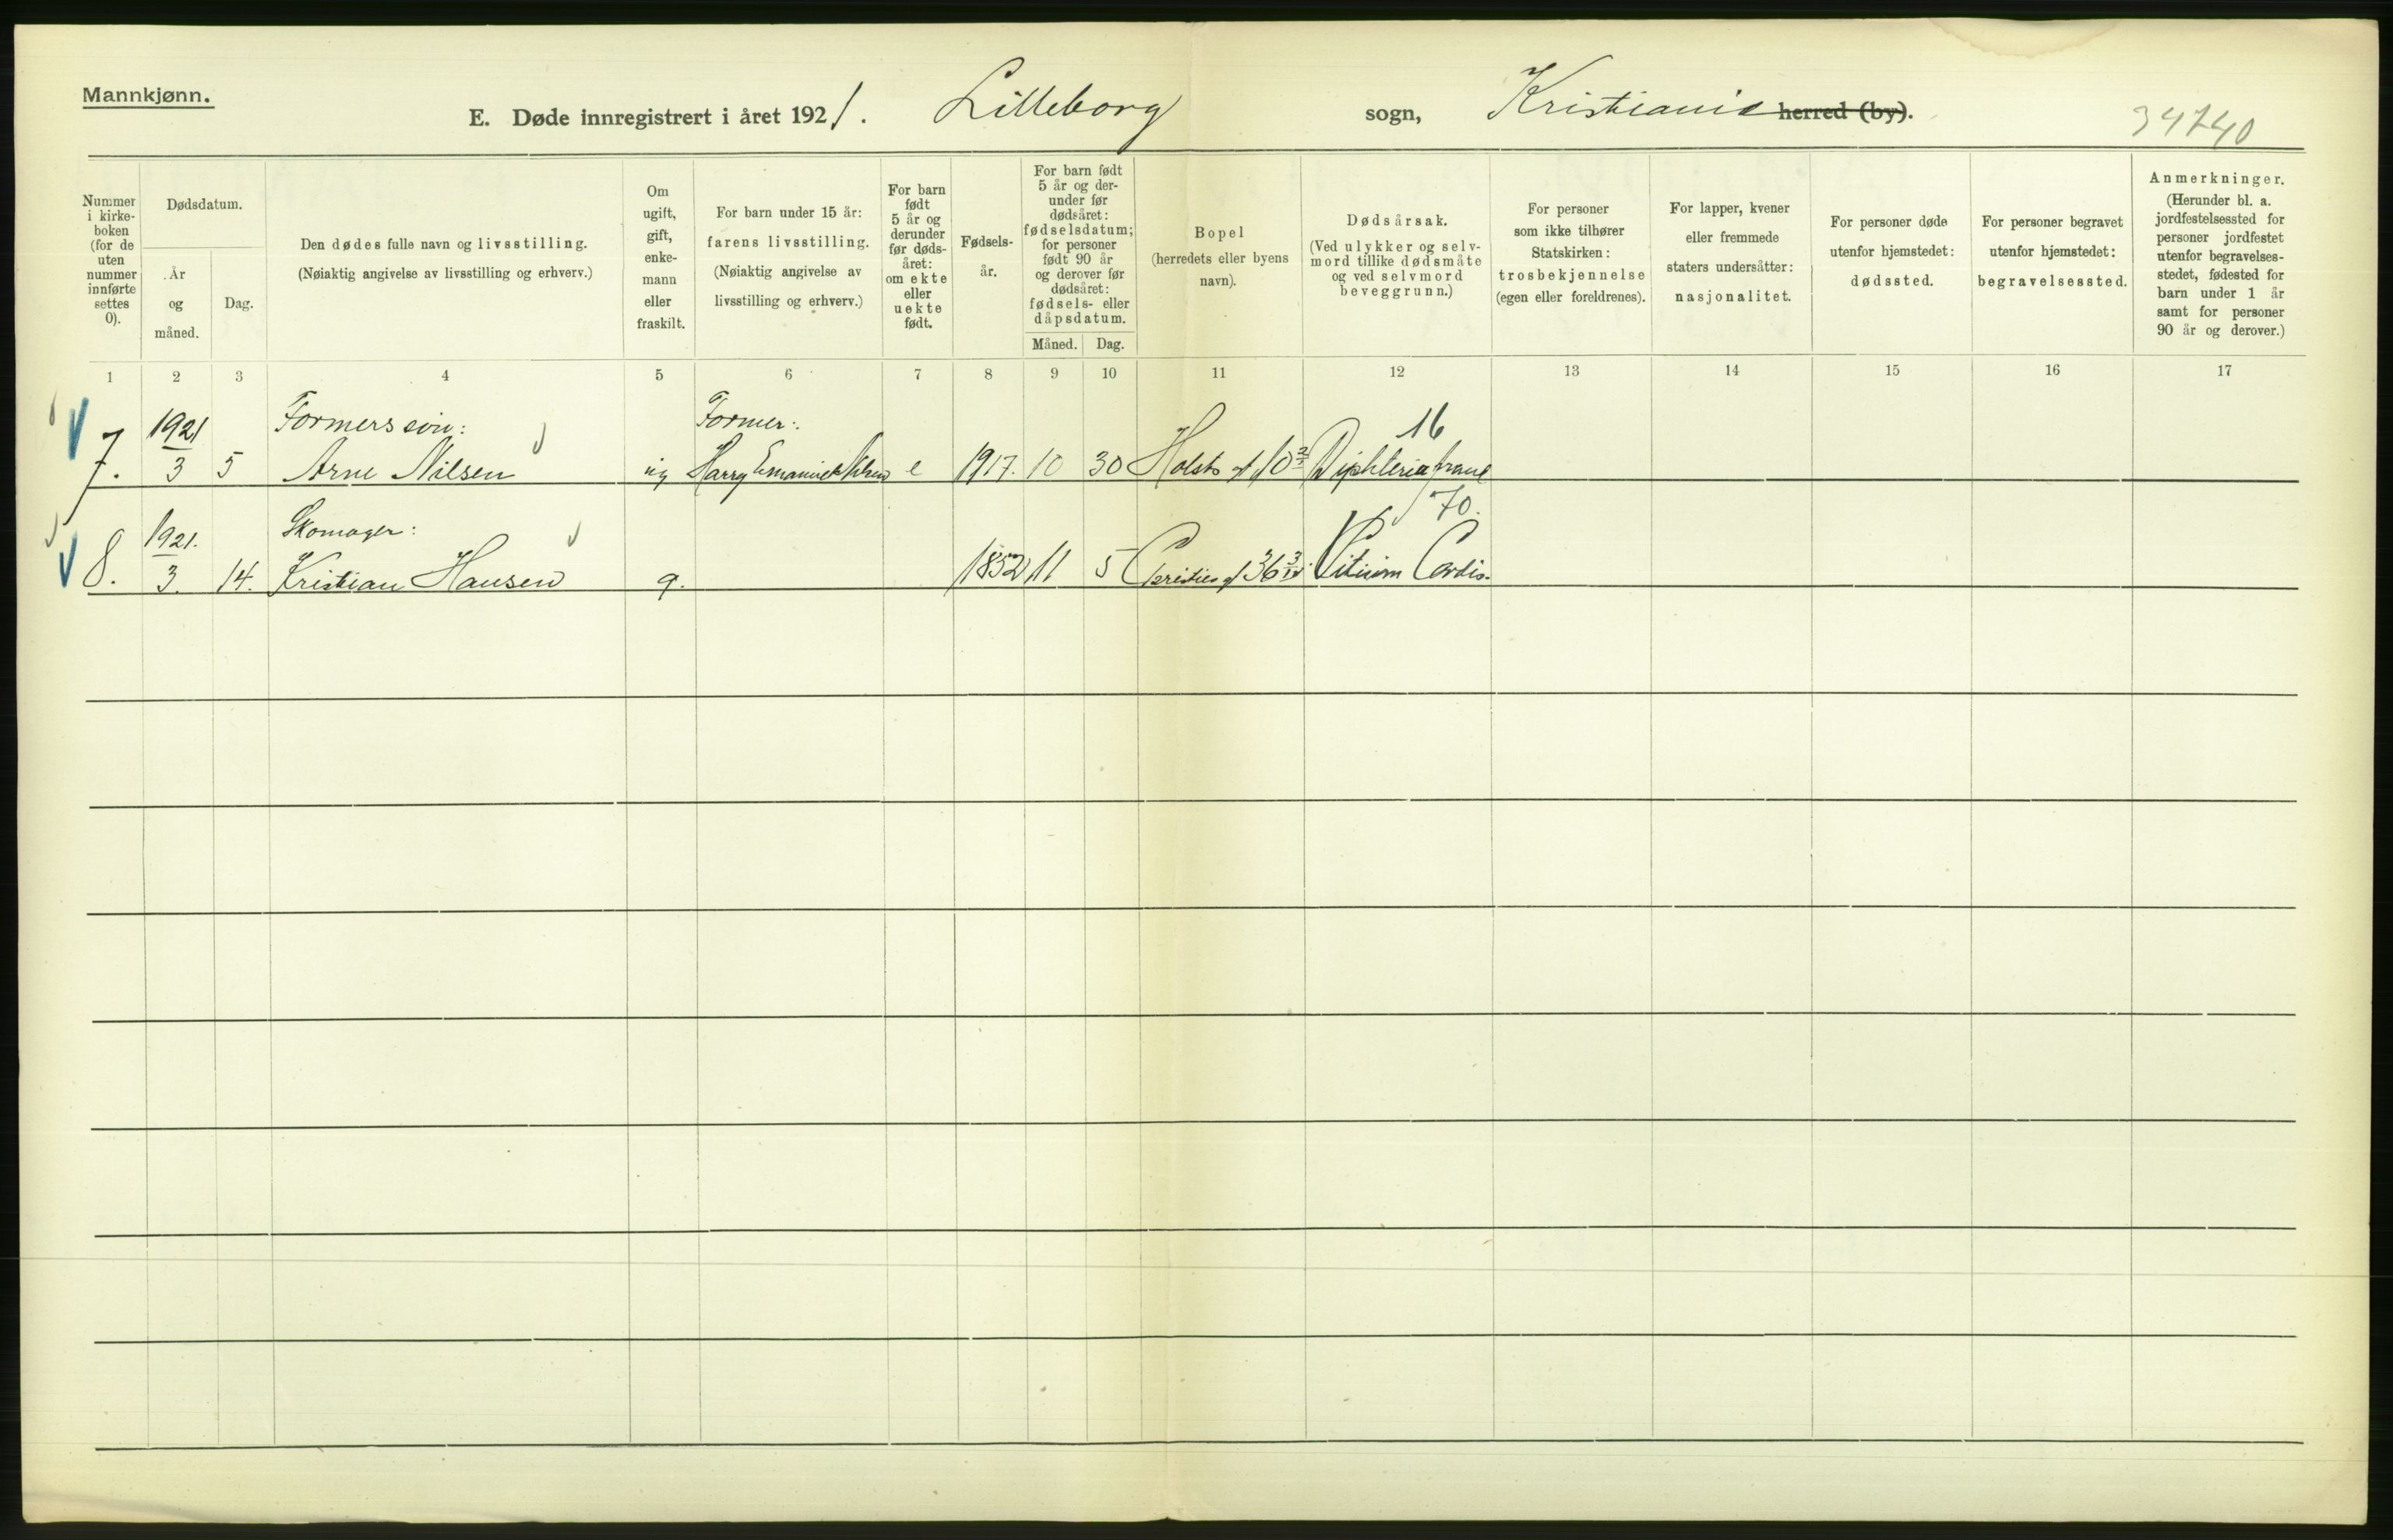 Mannkjønn.
E. Døde innregistrert i året 1921. Lilleborg sogn, Kristiania herred (by).
34740
Nummer i kirkeboken (for de uten nummer innførte settes 0).
Dødsdatum.
År og måned.
Dag.
Den dødes fulle navn og livsstilling.
(Nøiaktig angivelse av livsstilling og erhverv.)
Om ugift, gift, enkemann eller fraskilt.
For barn under 15 år: farens livsstilling.
(Nøiaktig angivelse av livsstilling og erhverv.)
For barn født 5 år og derunder før dødsåret: om ekte eller uekte født.
Fødselsår.
For barn født 5 år og derunder før dødsåret: fødselsdatum; for personer født 90 år og derover før dødsåret: fødsels- eller dåpsdatum.
Måned. Dag.
Bopel
(herredets eller byens navn).
Dødsårsak.
(Ved ulykker og selvmord tillike dødsmåte og ved selvmord beveggrunn.)
For personer som ikke tilhører Statskirken: trosbekjennelse (egen eller foreldrenes).
For lapper, kvener eller fremmede staters undersåtter: nasjonalitet.
For personer døde utenfor hjemstedet: dødssted.
For personer begravet utenfor hjemstedet: begravelsessted.
Anmerkninger.
(Herunder bl. a. jordfestelsessted for personer jordfestet utenfor begravelsesstedet, fødested for barn under 1 år samt for personer 90 år og derover.)
1 2 3 4 5 6 7 8 9 10 11 12 13 14 15 16 17
1921 Formerssøn: Former: 16
7. 3 5 Arne Nilsen ug Harry Emanuel Nilsen e 1917. 10 30 Holsts gt 10 Diphteria
1921. Skomager: 70.
8. 3. 14. Kristian Hansen g. 1852 11 5 Christies gt 36 Vitium Cordis.